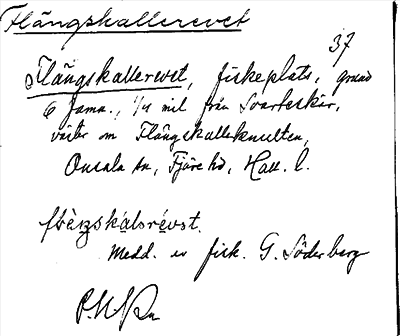 Flängskallerevet
37
Flängskallerevet, fiskeplats, grund
6 famn., 1/4 mil från Svarteskär,
väster om Flängskalleknulten,
Onsala sn, Fjäre hd, Hall. l.
Medd. av fisk. G. Söderberg